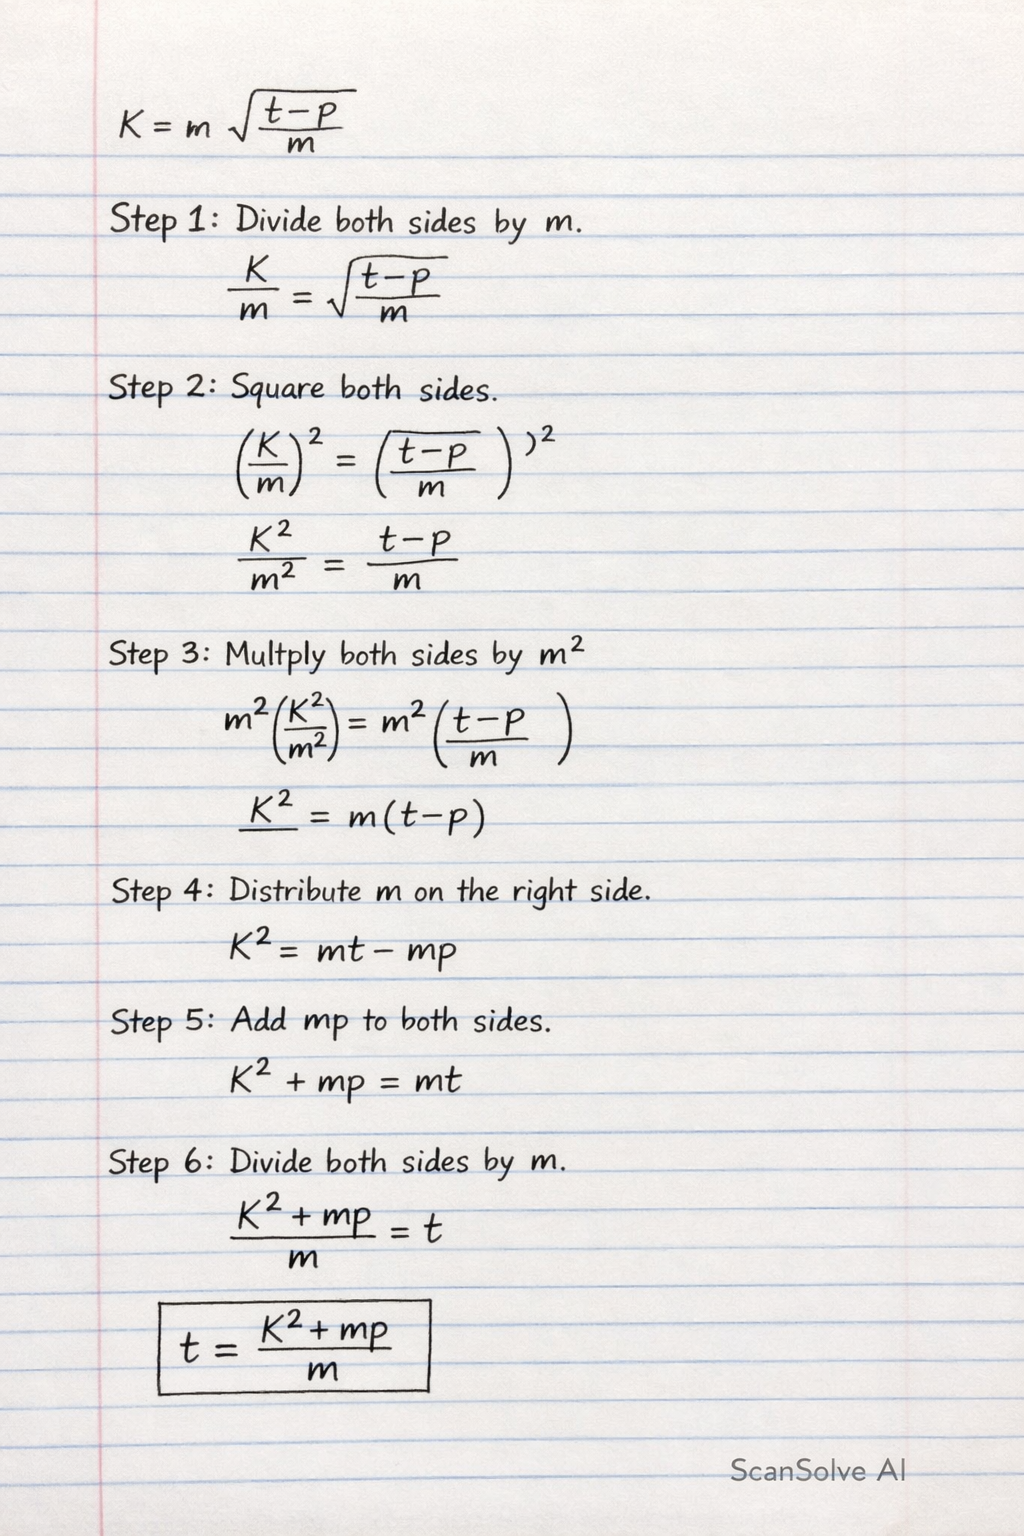 K = m √((t-p)/m)
Step 1: Divide both sides by m.
K/m = √((t-p)/m)
Step 2: Square both sides.
(K/m)² = ((t-p)/m ))²
K²/m² = (t-p)/m
Step 3: Multply both sides by m²
m²(K²/m²) = m²((t-p)/m )
K² = m(t-p)
Step 4: Distribute m on the right side.
K² = mt - mp
Step 5: Add mp to both sides.
K² + mp = mt
Step 6: Divide both sides by m.
(K² + mp)/m = t
t = (K² + mp)/m
ScanSolve AI